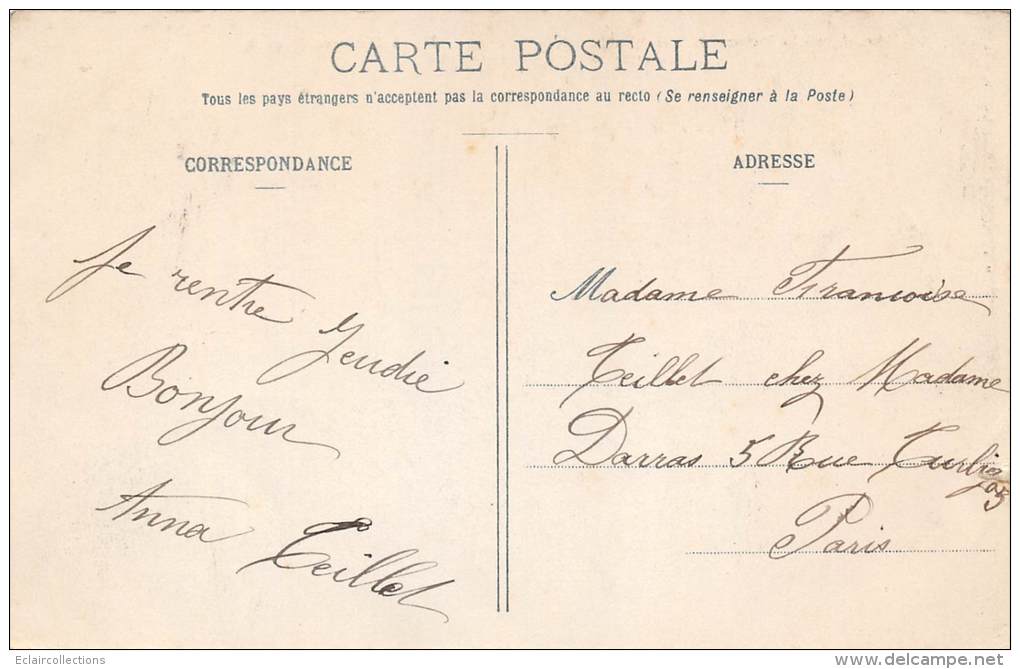 CARTE POSTALE
Tous les pays étrangers n'acceptent pas la correspondance au recto (Se renseigner à la Poste)
CORRESPONDANCE
Je rentre Jeudie
Bonjour
Anna Teillet
ADRESSE
Madame Francoise
Teillet chez Madame
Darras 5 Rue Turbigo
Paris
Eclaircollections
www.delcampe.net